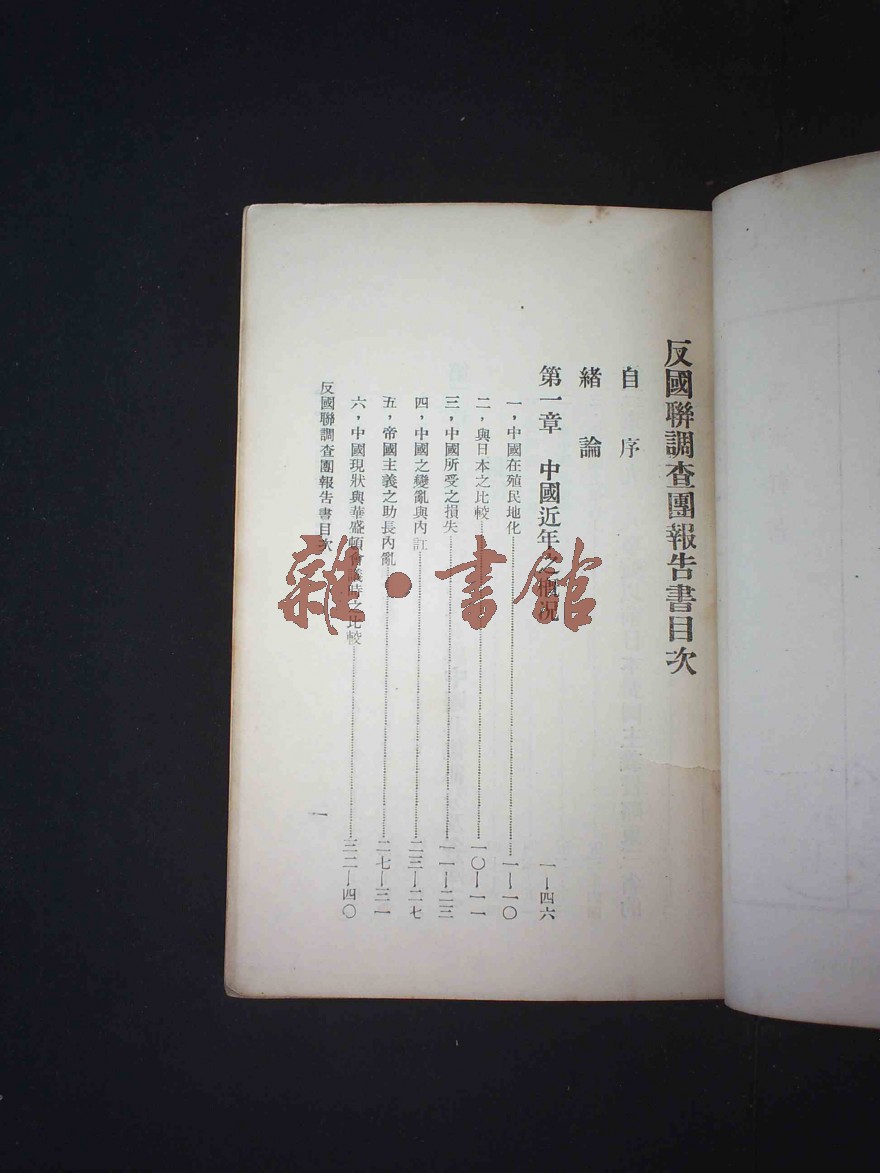 反國聯調查團報告書目次
自序
緒論
第一章 中國近年之概況 一—四六
一，中國在殖民地化 一—一〇
二，與日本之比較 一〇—一一
三，中國所受之損失 一一—二三
四，中國之變亂與內訌 二三—二七
五，帝國主義之助長內亂 二七—三一
六，中國現狀與華盛頓會議時之比較 三二—四〇
反國聯調查團報告書目次
一
雜·書館